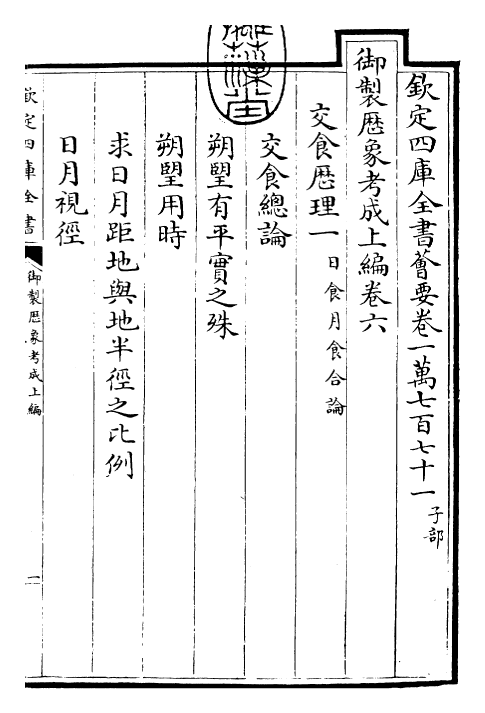 欽定四庫全書薈要卷一萬七百七十一 子部
御製厯象考成上編卷六
交食厯理一 日食月食合論
交食總論
朔望有平實之殊
朔望用時
求日月距地與地半徑之比例
日月視徑
欽定四庫全書
御製厯象考成上編
一